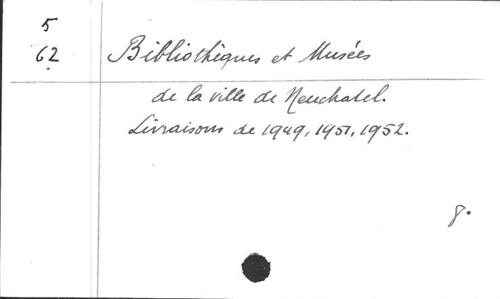 5
62
Bibliothèques et Musées
de la ville de Neuchatel.
Livraisons de 1949, 1951, 1952.
8°